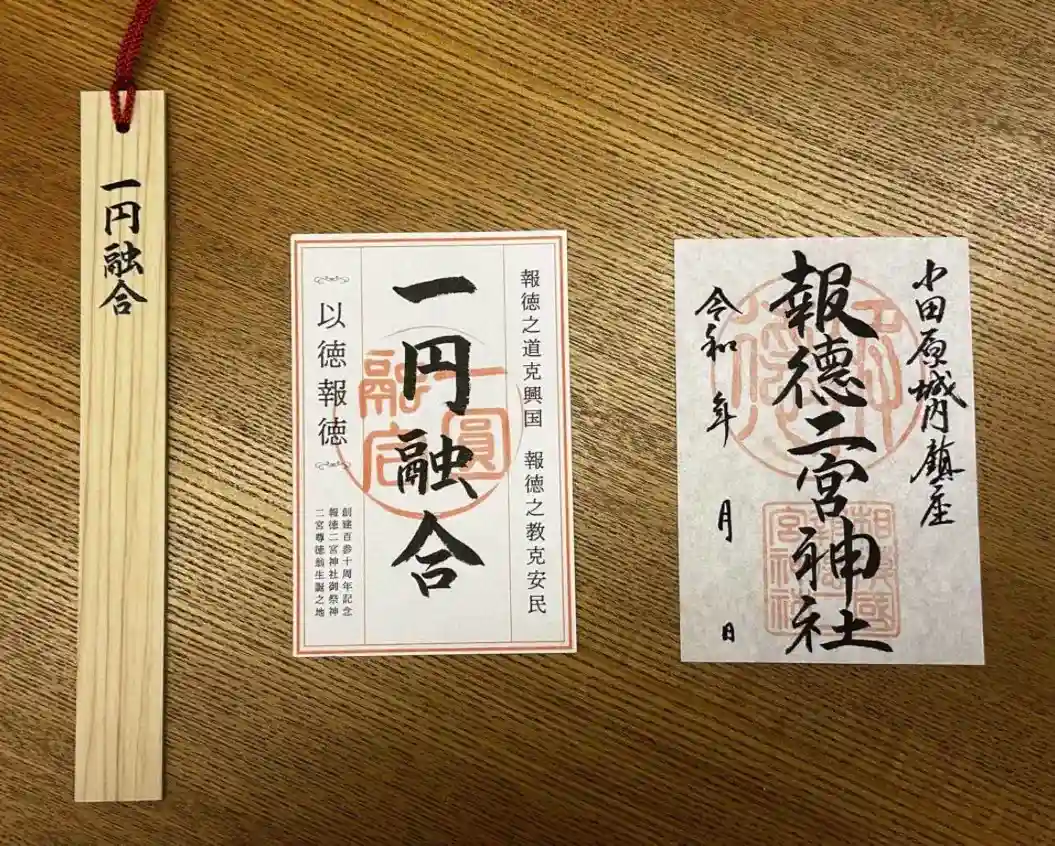 一円融合
報徳之道克興国　報徳之教克安民
一円融合
一圓融合
以徳報徳
創建百参十周年記念
報徳二宮神社御祭神
二宮尊徳翁生誕之地
小田原城内鎮座
報徳二宮神社
令和　年　月　日